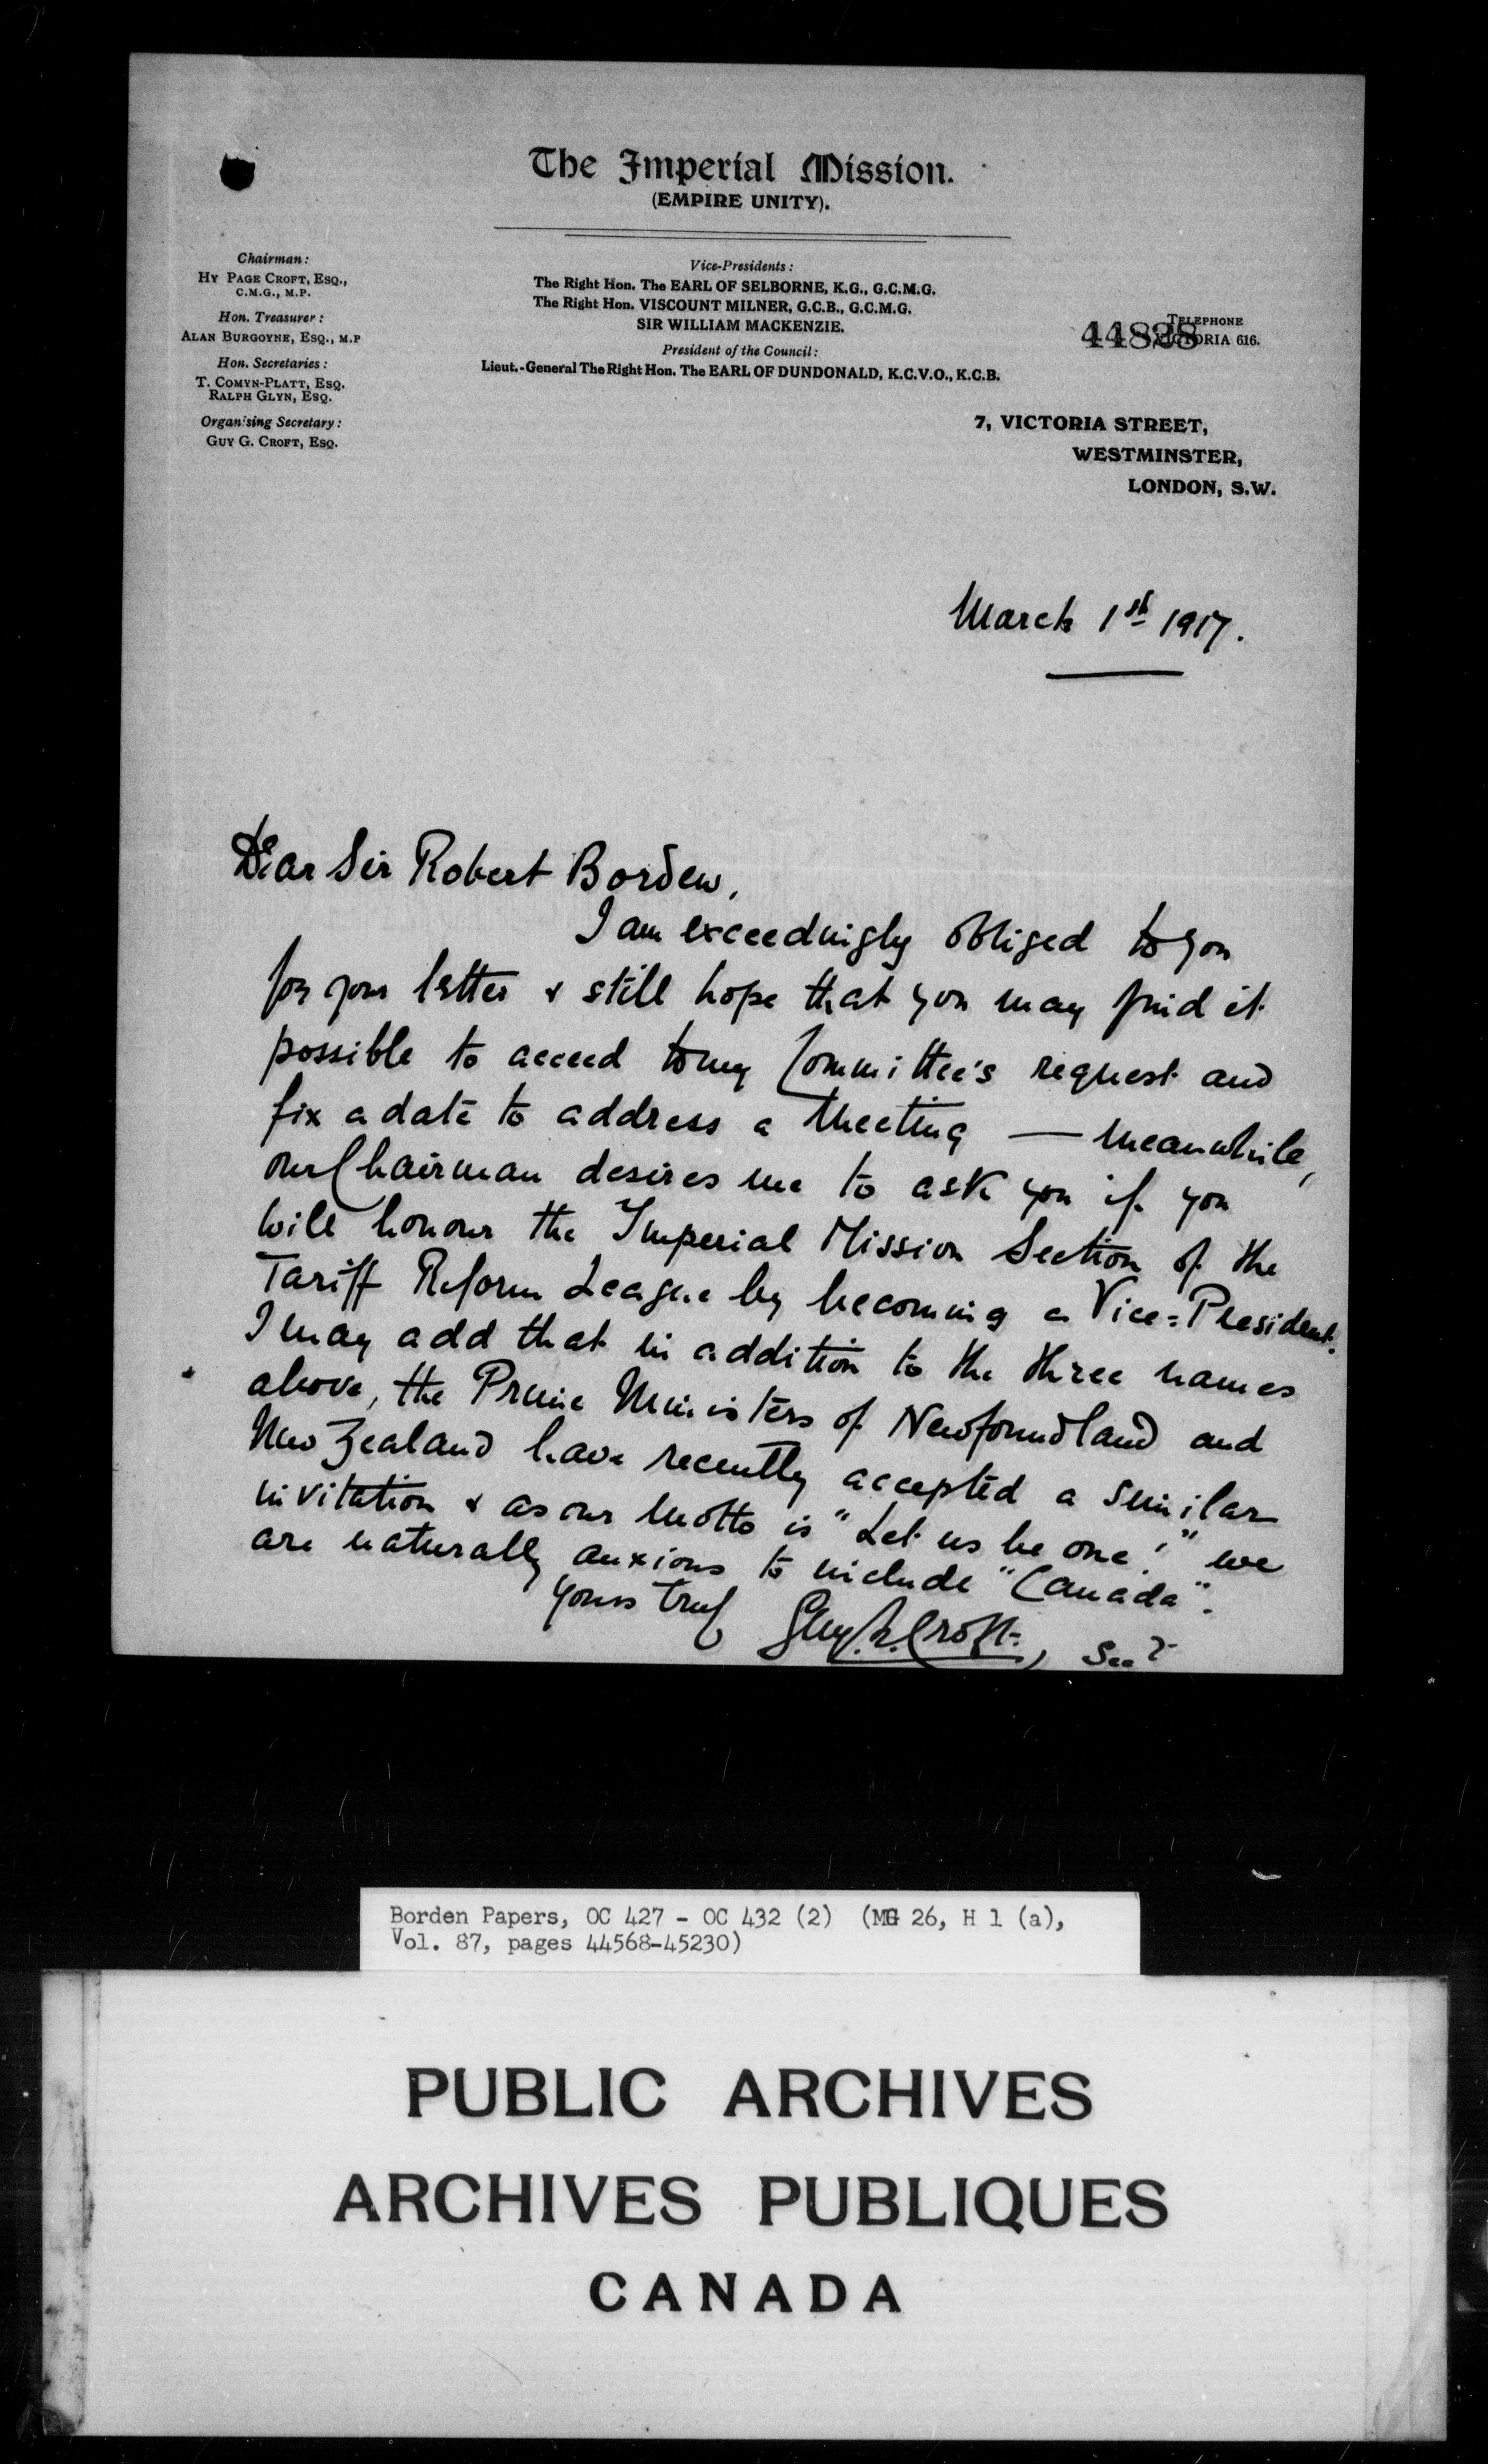 The Imperial Mission.
(EMPIRE UNITY).
Chairman:
HY PAGE CROFT, ESQ.,
C.M.G., M.P.
Hon. Treasurer:
ALAN BURGOYNE, ESQ., M.P
Hon. Secretaries:
T. COMYN-PLATT, ESQ.
RALPH GLYN, ESQ.
Organising Secretary:
GUY G. CROFT, ESQ.
Vice-Presidents:
The Right Hon. The EARL OF SELBORNE, K.G., G.C.M.G.
The Right Hon. VISCOUNT MILNER, G.C.B., G.C.M.G.
SIR WILLIAM MACKENZIE.
President of the Council:
Lieut.-General The Right Hon. The EARL OF DUNDONALD, K.C.V.O., K.C.B.
TELEPHONE
VICTORIA 616.
44828
7, VICTORIA STREET,
WESTMINSTER,
LONDON, S.W.
March 1st 1917.
Dear Sir Robert Borden,
I am exceedingly obliged to you
for your letter & still hope that you may find it
possible to acceed to my Committee's request and
fix a date to address a Meeting — Meanwhile,
our Chairman desires me to ask you if you
will honour the Imperial Mission Section of the
Tariff Reform League by becoming a Vice=President.
I may add that in addition to the three names
above, the Prime Ministers of Newfoundland and
New Zealand have recently accepted a similar
invitation & as our Motto is "Let us be one!" we
are naturally anxious to include "Canada".
Yours truly
Guy G. Croft, Secy
Borden Papers, OC 427 - OC 432 (2) (MG 26, H 1 (a),
Vol. 87, pages 44568-45230)
PUBLIC ARCHIVES
ARCHIVES PUBLIQUES
CANADA